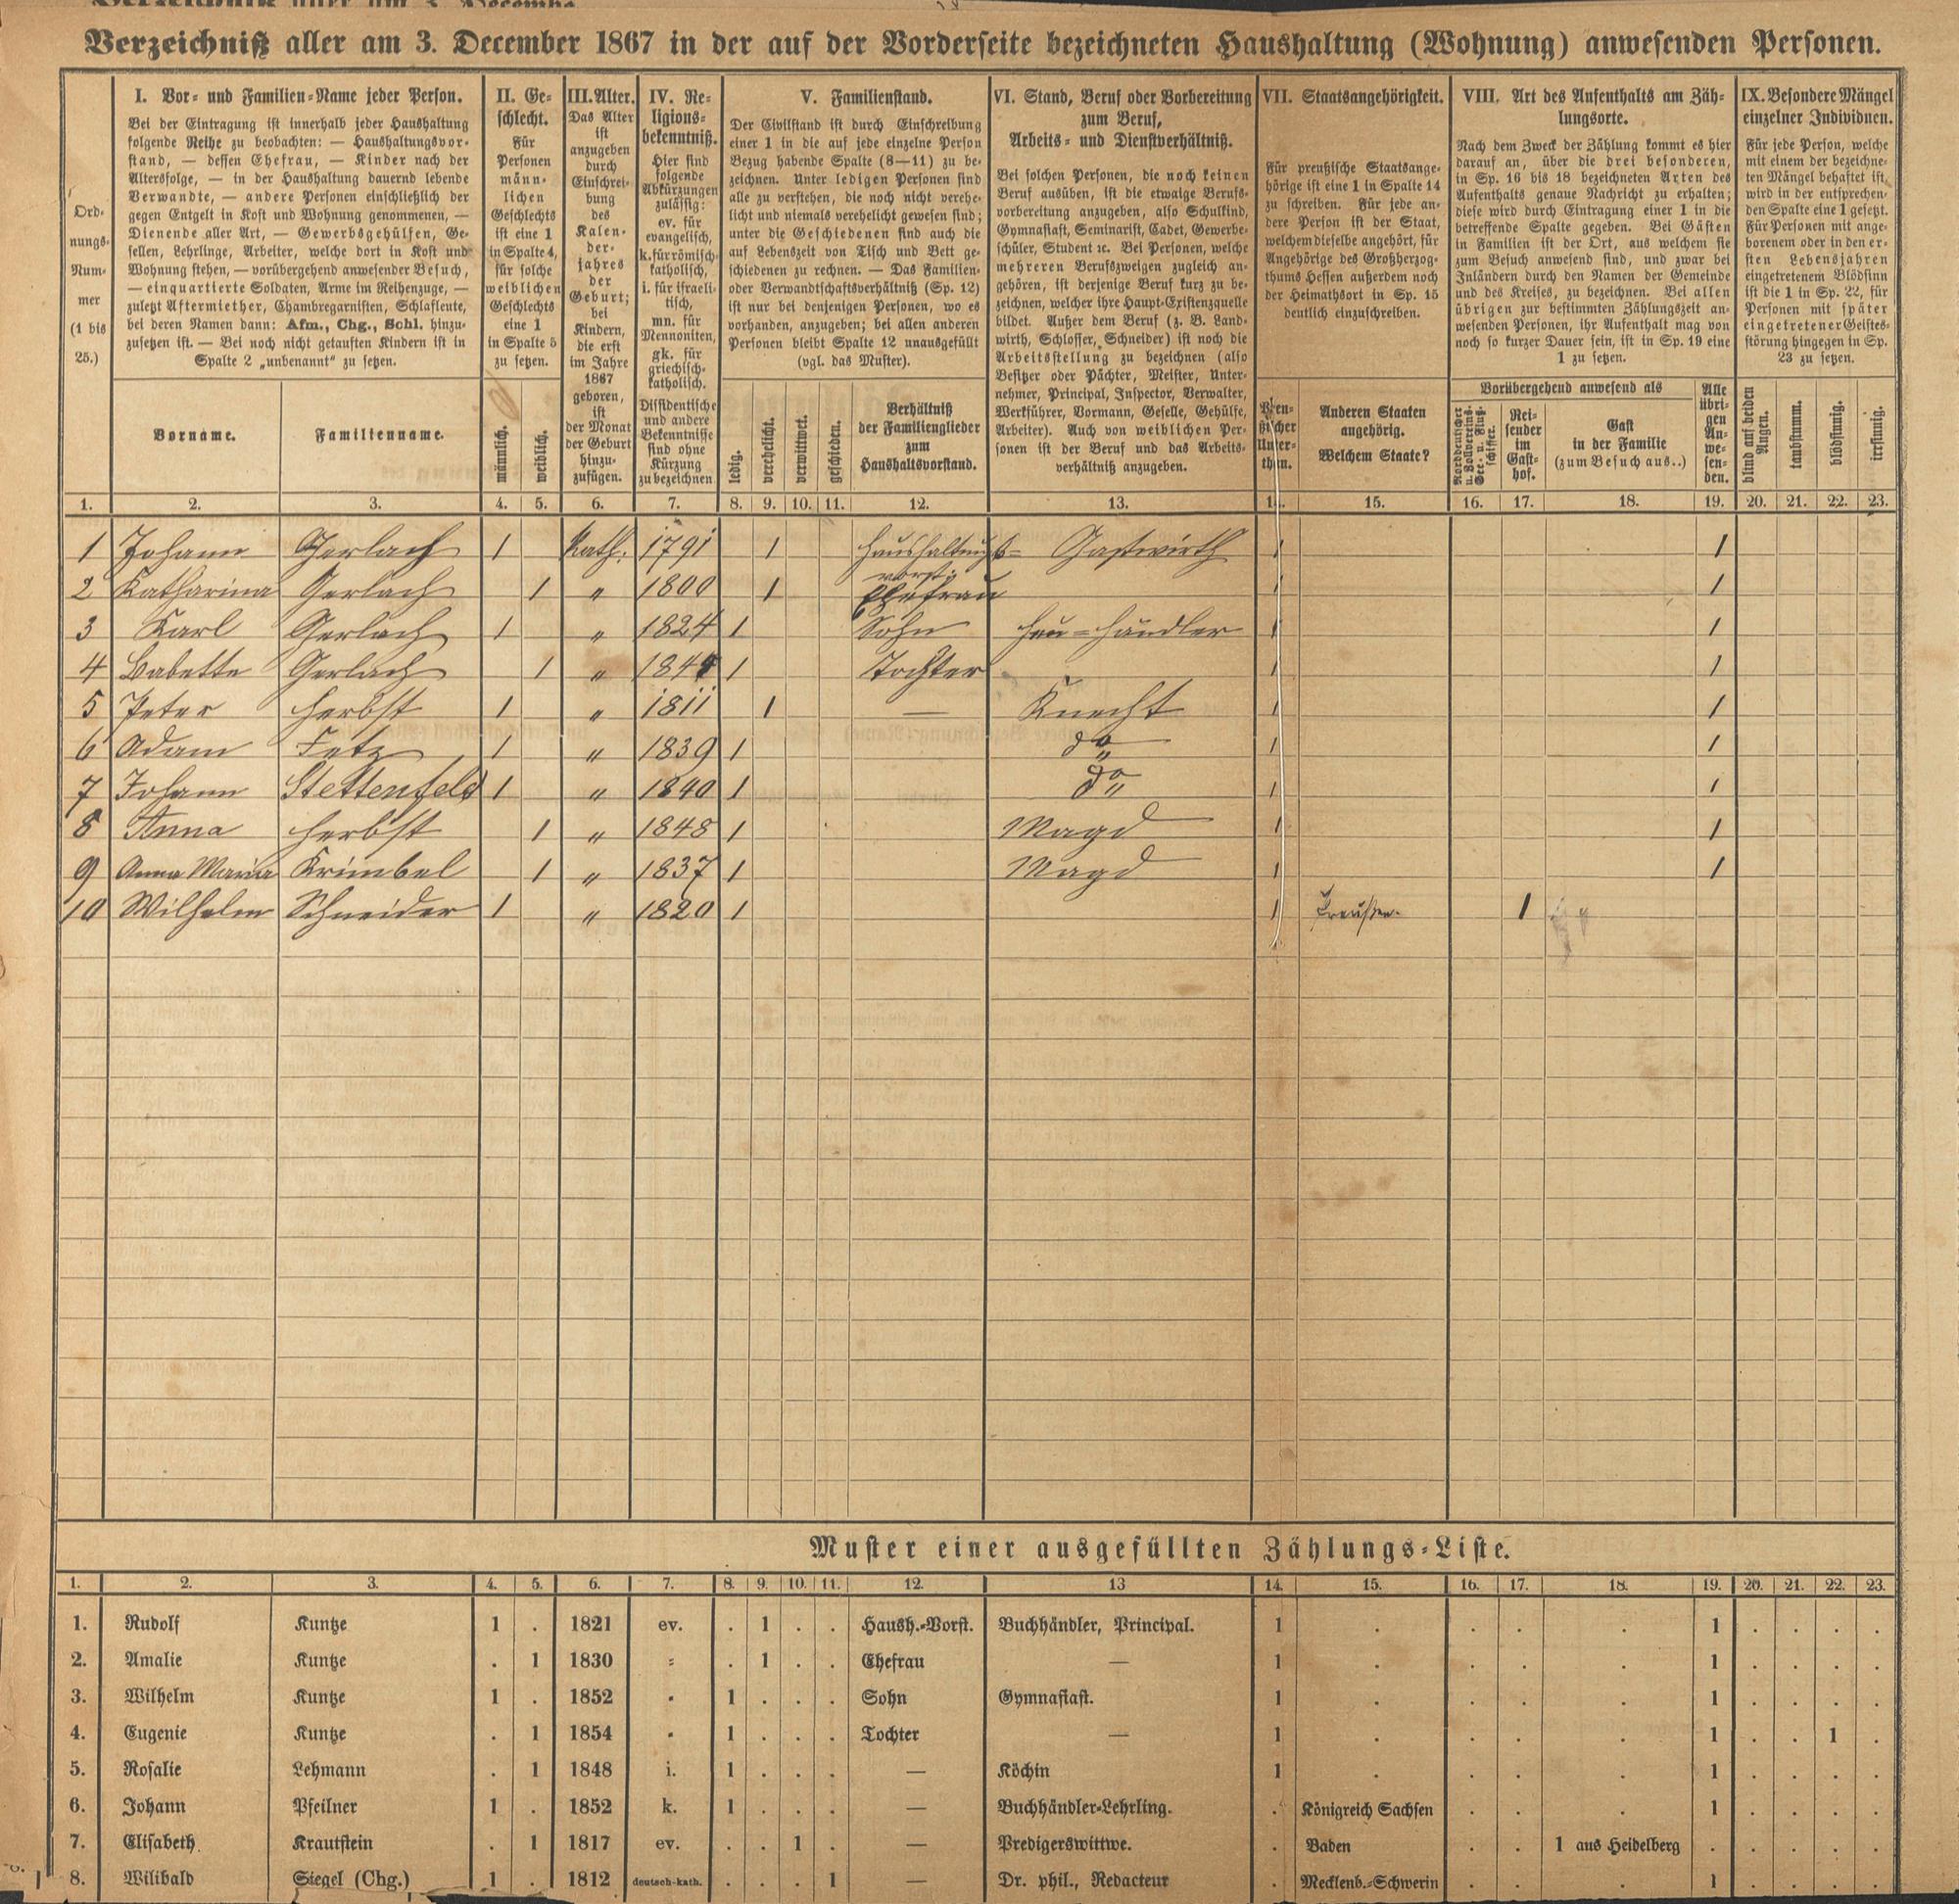 Verzeichniß aller am 3. December 1867 in der auf der Vorderseite bezeichneten Haushaltung (Wohnung) anwesenden Personen.
Ord-
nungs-
Num-
mer
(1 bis
25.)
I. Vor- und Familien-Name jeder Person.
Bei der Eintragung ist innerhalb jeder Haushaltung
folgende Reihe zu beobachten: — Haushaltungsvor-
stand, — dessen Ehefrau, — Kinder nach der
Altersfolge, — in der Haushaltung dauernd lebende
Verwandte, — andere Personen einschließlich der
gegen Entgelt in Kost und Wohnung genommenen, —
Dienende aller Art, — Gewerbsgehülfen, Ge-
sellen, Lehrlinge, Arbeiter, welche dort in Kost und
Wohnung stehen, — vorübergehend anwesender Besuch,
— einquartierte Soldaten, Arme im Reihenzuge, —
zuletzt Aftermiether, Chambregarnisten, Schlafleute,
bei deren Namen dann: Afm., Chg., Schl. hinzu-
zusetzen ist. — Bei noch nicht getauften Kindern ist in
Spalte 2 „unbenannt“ zu setzen.
Vorname.
Familienname.
II. Ge-
schlecht.
Für
Personen
männ-
lichen
Geschlechts
ist eine 1
in Spalte 4,
für solche
weiblichen
Geschlechts
eine 1
in Spalte 5
zu setzen.
männlich.
weiblich.
III. Alter.
Das Alter
ist
anzugeben
durch
Einschrei-
bung
des
Kalen-
der-
jahres
der
Geburt;
bei
Kindern,
die erst
im Jahre
1867
geboren,
ist
der Monat
der Geburt
hinzu-
zufügen.
IV. Re-
ligions-
bekenntniß.
Hier sind
folgende
Abkürzungen
zulässig:
ev. für
evangelisch,
k. für römisch-
katholisch,
i. für israeli-
tisch,
mn. für
Mennoniten,
gk. für
griechisch-
katholisch.
Dissidentische
und andere
Bekenntnisse
sind ohne
Kürzung
zu bezeichnen.
V. Familienstand.
Der Civilstand ist durch Einschreibung
einer 1 in die auf jede einzelne Person
Bezug habende Spalte (8—11) zu be-
zeichnen. Unter ledigen Personen sind
alle zu verstehen, die noch nicht verehe-
licht und niemals verehelicht gewesen sind;
unter die Geschiedenen sind auch die
auf Lebenszeit von Tisch und Bett ge-
schiedenen zu rechnen. — Das Familien-
oder Verwandtschaftsverhältniß (Sp. 12)
ist nur bei denjenigen Personen, wo es
vorhanden, anzugeben; bei allen anderen
Personen bleibt Spalte 12 unausgefüllt
(vgl. das Muster).
ledig.
verehelicht.
verwittwet.
geschieden.
Verhältniß
der Familienglieder
zum
Haushaltsvorstand.
VI. Stand, Beruf oder Vorbereitung
zum Beruf,
Arbeits- und Dienstverhältniß.
Bei solchen Personen, die noch keinen
Beruf ausüben, ist die etwaige Berufs-
vorbereitung anzugeben, also Schulkind,
Gymnasiast, Seminarist, Cadet, Gewerbe-
schüler, Student ec. Bei Personen, welche
mehreren Berufszweigen zugleich an-
gehören, ist derjenige Beruf kurz zu be-
zeichnen, welcher ihre Haupt-Existenzquelle
bildet. Außer dem Beruf (z. B. Land-
wirth, Schlosser, Schneider) ist noch die
Arbeitsstellung zu bezeichnen (also
Besitzer oder Pächter, Meister, Unter-
nehmer, Principal, Inspector, Verwalter,
Werkführer, Vormann, Geselle, Gehülfe,
Arbeiter). Auch von weiblichen Per-
sonen ist der Beruf und das Arbeits-
verhältniß anzugeben.
VII. Staatsangehörigkeit.
Für preußische Staatsange-
hörige ist eine 1 in Spalte 14
zu schreiben. Für jede an-
dere Person ist der Staat,
welchem dieselbe angehört, für
Angehörige des Großherzog-
thums Hessen außerdem noch
der Heimathsort in Sp. 15
deutlich einzuschreiben.
Preu-
ßischer
Unter-
than.
Anderen Staaten
angehörig.
Welchem Staate?
VIII. Art des Aufenthalts am Zäh-
lungsorte.
Nach dem Zweck der Zählung kommt es hier
darauf an, über die drei besonderen,
in Sp. 16 bis 18 bezeichneten Arten des
Aufenthalts genaue Nachricht zu erhalten;
diese wird durch Eintragung einer 1 in die
betreffende Spalte gegeben. Bei Gästen
in Familien ist der Ort, aus welchem sie
zum Besuch anwesend sind, und zwar bei
Inländern durch den Namen der Gemeinde
und des Kreises, zu bezeichnen. Bei allen
übrigen zur bestimmten Zählungszeit an-
wesenden Personen, ihr Aufenthalt mag von
noch so kurzer Dauer sein, ist in Sp. 19 eine
1 zu setzen.
Vorübergehend anwesend als
Norddeutscher
u. Zollvereins-
See- u. Fluß-
schiffer.
Rei-
sender
im
Gast-
hof.
Gast
in der Familie
(zum Besuch aus..)
Alle
übri-
gen
An-
we-
sen-
den.
IX. Besondere Mängel
einzelner Individuen.
Für jede Person, welche
mit einem der bezeichne-
ten Mängel behaftet ist,
wird in der entsprechen-
den Spalte eine 1 gesetzt.
Für Personen mit ange-
borenem oder in den er-
sten Lebensjahren
eingetretenem Blödsinn
ist die 1 in Sp. 22, für
Personen mit später
eingetretener Geistes-
störung hingegen in Sp.
23 zu setzen.
blind auf beiden
Augen.
taubstumm.
blödsinnig.
irrsinnig.
1. 2. 3. 4. 5. 6. 7. 8. 9. 10. 11. 12. 13. 14. 15. 16. 17. 18. 19. 20. 21. 22. 23.
1 Johann Gerlach 1 Kath. 1791 1 Haushaltungs- vorst. Gastwirth 1 1
2 Katharina Gerlach 1 " 1800 1 Ehefrau 1 1
3 Karl Gerlach 1 " 1824 1 Sohn Heu-händler 1 1
4 Babette Gerlach 1 " 1 Tochter 1 1
5 Peter Herbst 1 " 1811 1 — Knecht 1 1
6 Adam Fetz 1 " 1839 1 do 1 1
7 Johann Stettenfeld 1 " 1840 1 do 1 1
8 Anna Herbst 1 " 1848 1 Magd 1 1
9 Anna Maria Krimbel 1 " 1837 1 Magd 1 1
10 Wilhelm Schneider 1 " 1820 1 1 Preußen. 1
Muster einer ausgefüllten Zählungs-Liste.
1. 2. 3. 4. 5. 6. 7. 8. 9. 10. 11. 12. 13 14. 15. 16. 17. 18. 19. 20. 21. 22. 23.
1. Rudolf Kuntze 1 . 1821 ev. . 1 . . Haush.-Vorst. Buchhändler, Principal. 1 . . . . 1 . . . .
2. Amalie Kuntze . 1 1830 " . 1 . . Ehefrau — 1 . . . . 1 . . . .
3. Wilhelm Kuntze 1 . 1852 " 1 . . . Sohn Gymnasiast. 1 . . . . 1 . . . .
4. Eugenie Kuntze . 1 1854 " 1 . . . Tochter — 1 . . . . 1 . . 1 .
5. Rosalie Lehmann . 1 1848 i. 1 . . . — Köchin 1 . . . . 1 . . . .
6. Johann Pfeilner 1 . 1852 k. 1 . . . — Buchhändler-Lehrling. . Königreich Sachsen . . . 1 . . . .
7. Elisabeth Krautstein . 1 1817 ev. . . 1 . — Predigerswittwe. . Baden . . 1 aus Heidelberg . . . . .
8. Wilibald Siegel (Chg.) 1 . 1812 deutsch-kath. . . . 1 — Dr. phil., Redacteur . Mecklenb.-Schwerin . . . 1 . . . .